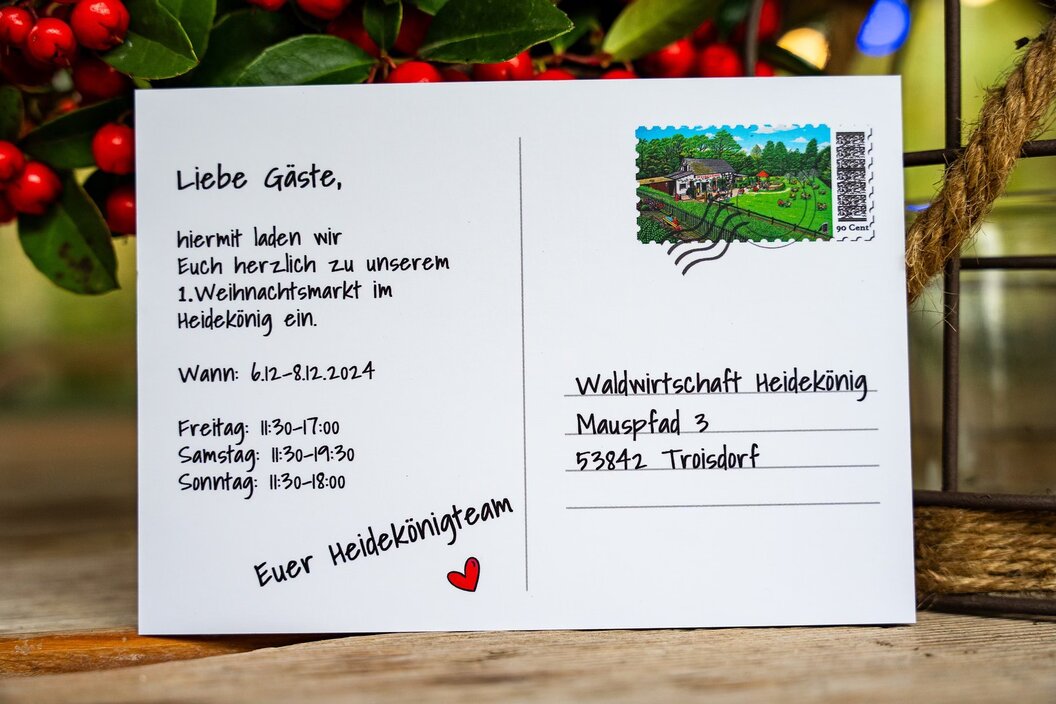 Liebe Gäste,
hiermit laden wir
Euch herzlich zu unserem
1.Weihnachtsmarkt im
Heidekönig ein.
Wann: 6.12-8.12.2024
Freitag: 11:30-17:00
Samstag: 11:30-19:30
Sonntag: 11:30-18:00
Euer Heidekönigteam
90 Cent
Waldwirtschaft Heidekönig
Mauspfad 3
53842 Troisdorf